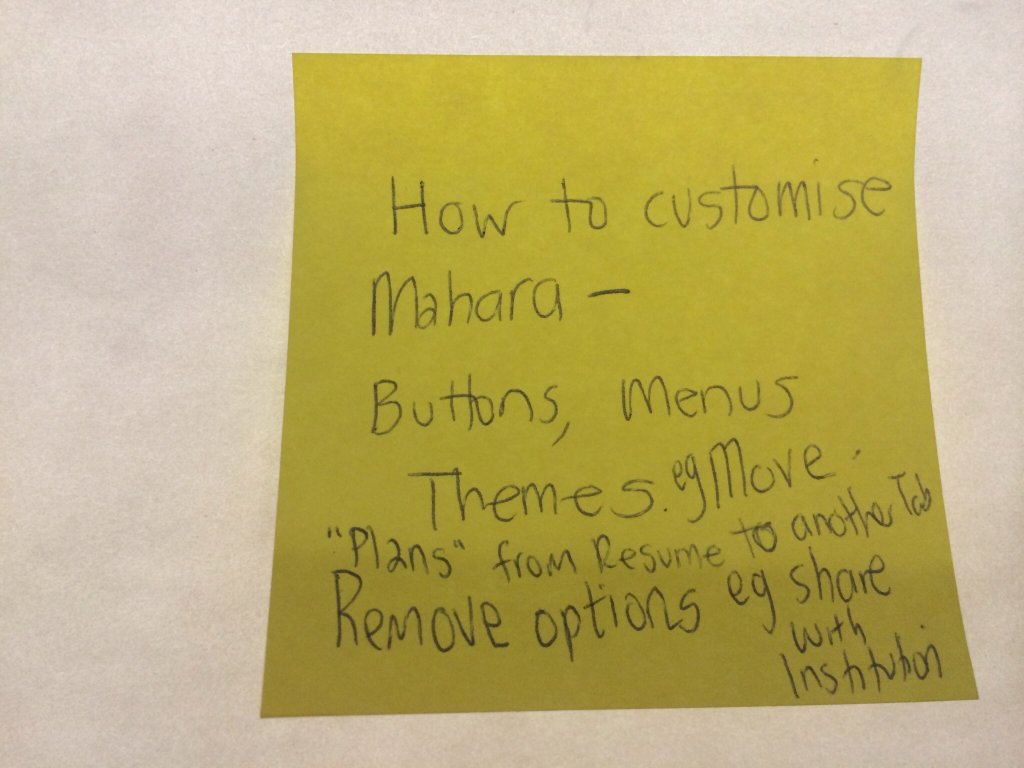 How to customise
Mahara –
Buttons, Menus
Themes. eg Move.
"Plans" from Resume to another Tab
Remove options eg share
with
Institution